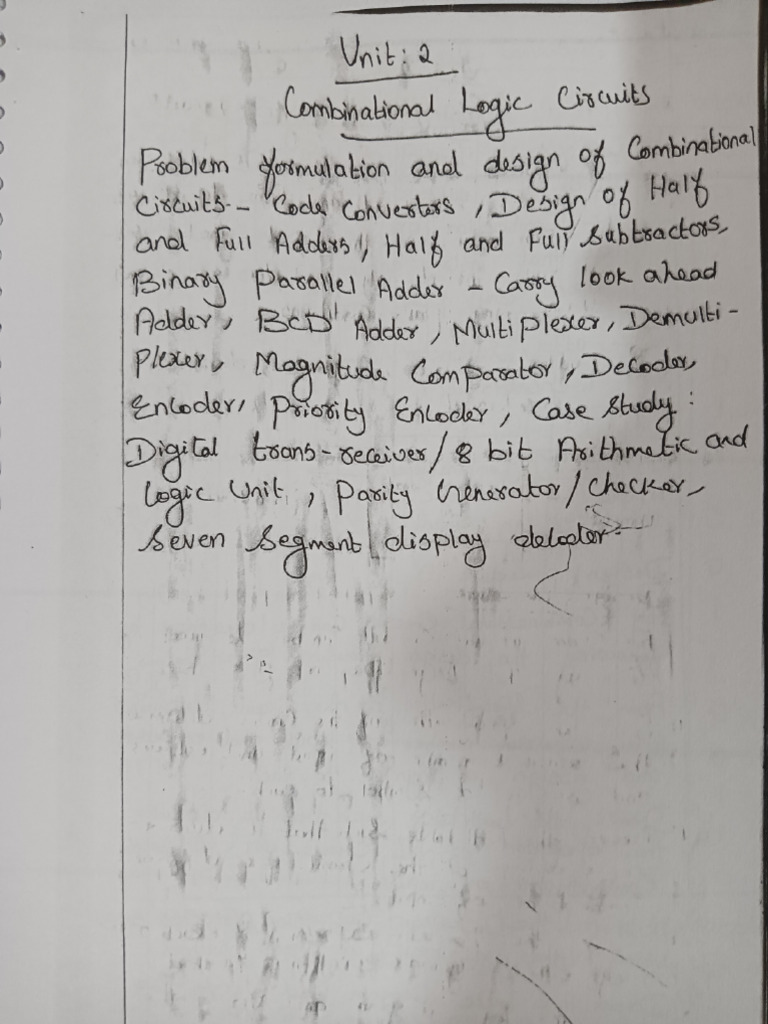 Unit: 2
Combinational Logic Circuits
Problem formulation and design of Combinational
Circuits - Code Converters, Design of Half
and Full Adders, Half and Full Subtractors,
Binary Parallel Adder - Carry look ahead
Adder, BCD Adder, Multiplexer, Demulti-
plexer, Magnitude Comparator, Decoder,
Encoder, Priority Encoder, Case Study:
Digital trans-receiver/8 bit Arithmetic and
Logic Unit, Parity Generator/Checker,
Seven Segment display